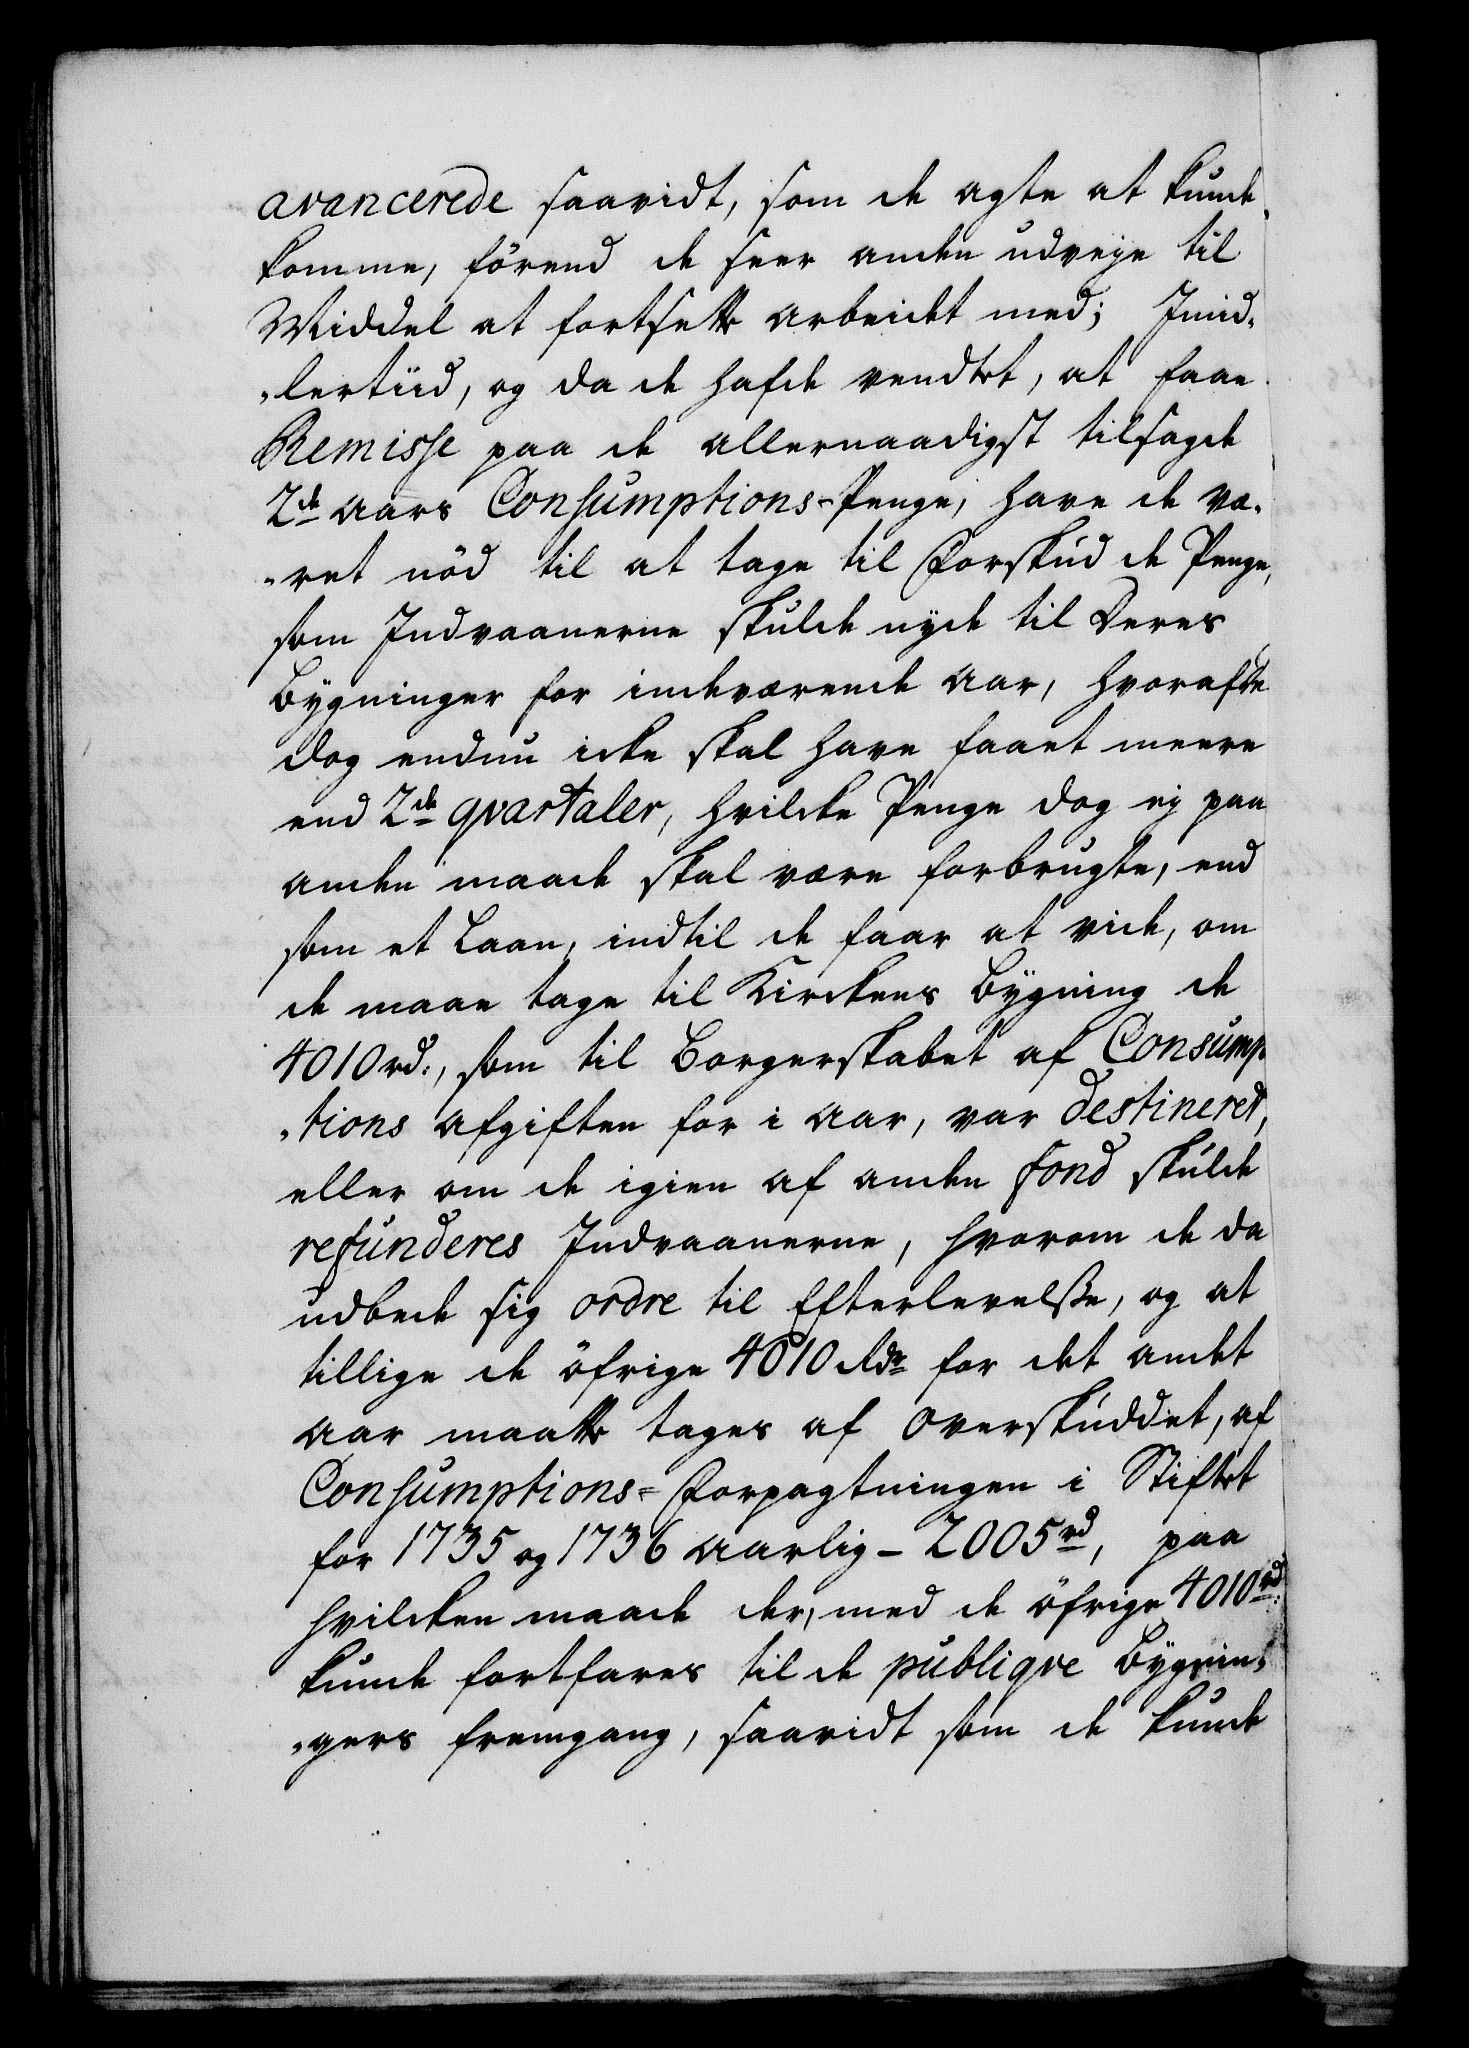 avancerede saavidt, som de agte at kunde
komme, förend de seer anden udveje til
Middel at fortsette arbeidet med; Imid„
„lertiid, og da de hafde vendtet, at faae
Remisse paa de allernaadigst tilsagde
2de aars Consumptions-Penge, have de væ„
„ret nöd til at tage til Forskud de Penge,
som Indvaanerne skulde nyde til Deres
bygninger for indeværende aar, hvoraf de
dog endnu icke skal have faaet meere
end 2de qvartaler, hvilcke Penge dog ej paa
anden maade skal være forbrugte, end
som et Laan, indtil de faar at vide, om
de maae tage til Kirckens bygning de
4010 rd:, som til Borgerskabet af Consump„
„tions afgiften for i aar, var destineret,
eller om de igien af anden fond skulde
refunderes Indvaanerne, hvorom de da
udbede sig ordre til Efterlevelsse, og at
tillige de öfrige 4010 Rdr for det andet
aar maatte tages af overskuddet, af
Consumptions-Forpagtningen i Stiftet
for 1735 og 1736 aarlig - 2005 rd, paa
hvilcken maade der, med de öfrige 4010 rd:
kunde fortfares til de publiqve bygnin„
„gers fremgang, saavidt som de kunde